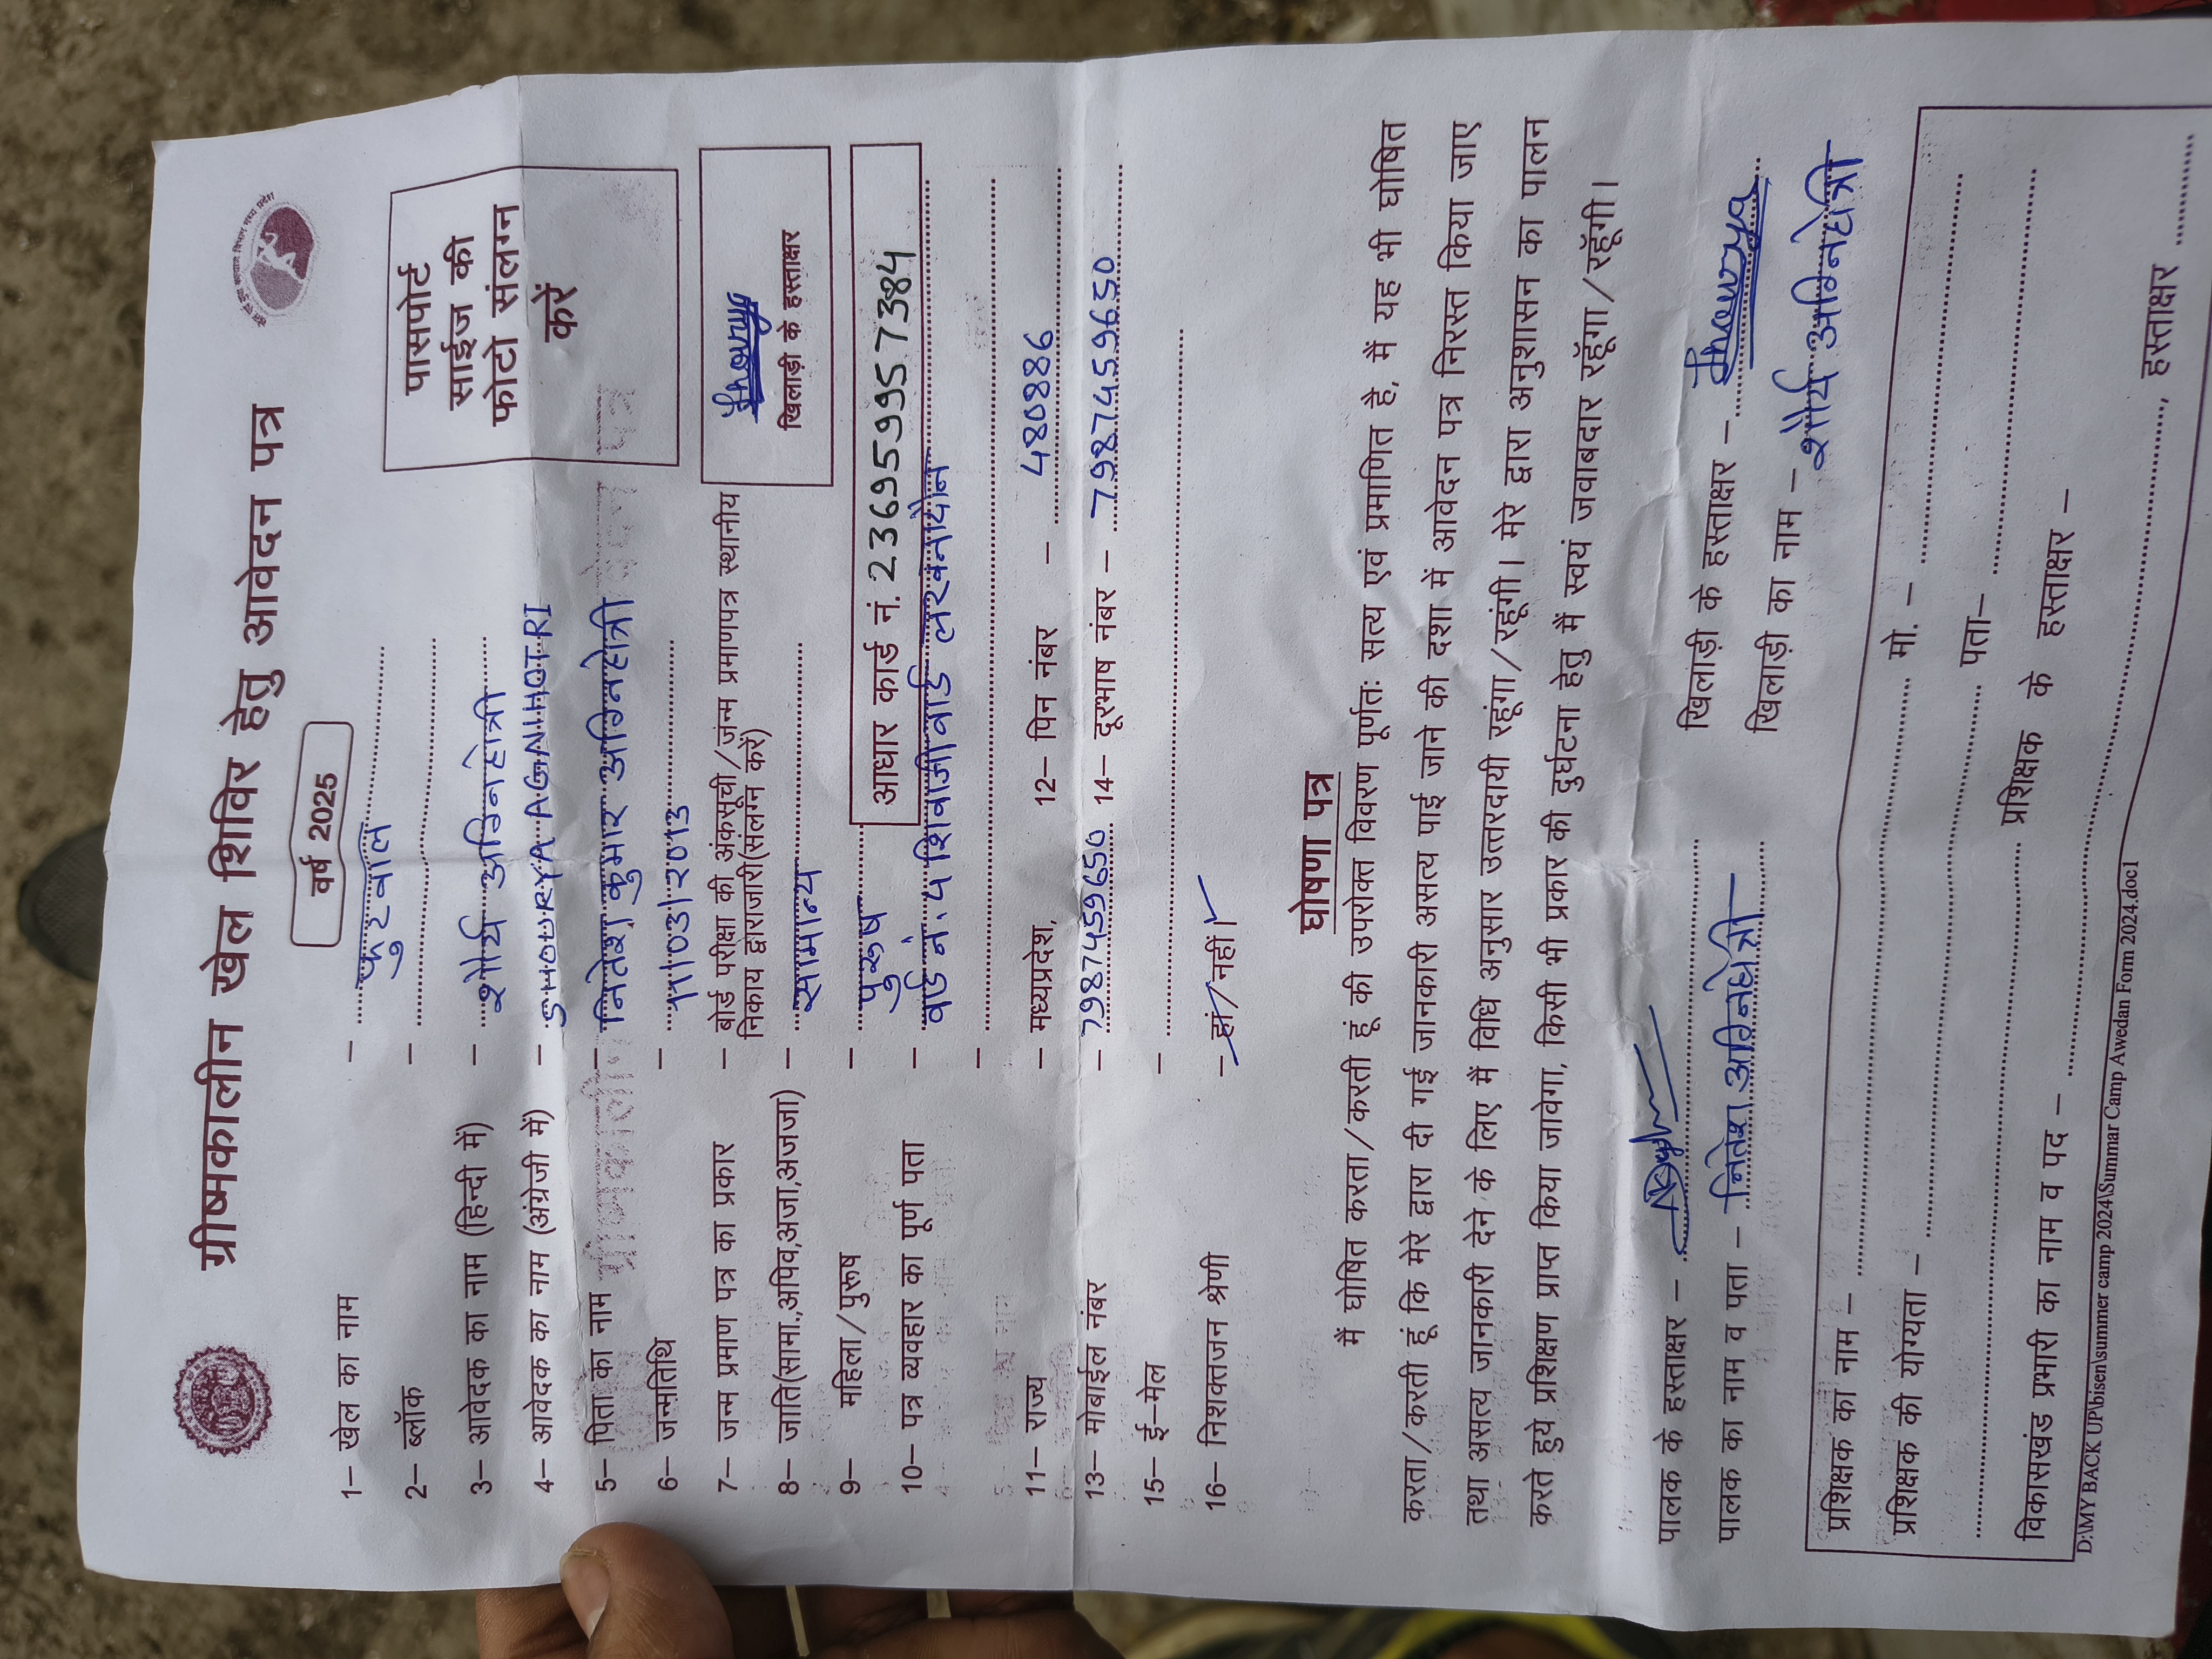 ग्रीष्मकालीन खेल शिविर हेतु आवेदन पत्र
वर्ष 2025
पासपोर्ट
साईज की
फोटो संलग्न
करें
1– खेल का नाम – फुटबाल
2– ब्लॉक –
3– आवेदक का नाम (हिन्दी में) – शौर्य अग्निहोत्री
4– आवेदक का नाम (अंग्रेजी में) – SHOURYA AGNIHOTRI
5– पिता का नाम – नितेश कुमार अग्निहोत्री
6– जन्मतिथि – 11/03/2013
7– जन्म प्रमाण पत्र का प्रकार – बोर्ड परीक्षा की अंकसूची/जन्म प्रमाणपत्र स्थानीय
निकाय द्वाराजारी(संलग्न करें)
Shourya
खिलाड़ी के हस्ताक्षर
8– जाति(सामा.,अपिव,अजा,अजजा) – सामान्य
9– महिला/पुरूष – पुरूष
आधार कार्ड नं. 236959957384
10– पत्र व्यवहार का पूर्ण पता – वार्ड नं. 5 शिवाजी वार्ड लखनादौन
–
11– राज्य – मध्यप्रदेश, 12– पिन नंबर – 480886
13– मोबाईल नंबर – 7987459650 14– दूरभाष नंबर – 7987459650
15– ई–मेल –
16– निशक्तजन श्रेणी – हां/नहीं।
घोषणा पत्र
मैं घोषित करता/करती हूं की उपरोक्त विवरण पूर्णतः सत्य एवं प्रमाणित है, मैं यह भी घोषित
करता/करती हूं कि मेरे द्वारा दी गई जानकारी असत्य पाई जाने की दशा में आवेदन पत्र निरस्त किया जाए
तथा असत्य जानकारी देने के लिए मैं विधि अनुसार उत्तरदायी रहूंगा/रहूंगी। मेरे द्वारा अनुशासन का पालन
करते हुये प्रशिक्षण प्राप्त किया जावेगा, किसी भी प्रकार की दुर्घटना हेतु मैं स्वयं जवाबदार रहूँगा/रहूँगी।
पालक के हस्ताक्षर – खिलाड़ी के हस्ताक्षर – Shourya
पालक का नाम व पता – नितेश अग्निहोत्री खिलाड़ी का नाम – शौर्य अग्निहोत्री
प्रशिक्षक का नाम – मो. –
प्रशिक्षक की योग्यता – पता–
प्रशिक्षक के हस्ताक्षर –
विकासखंड प्रभारी का नाम व पद – , हस्ताक्षर
D:\MY BACK UP\bisen\summer camp 2024\Summar Camp Awedan Form 2024.doc1